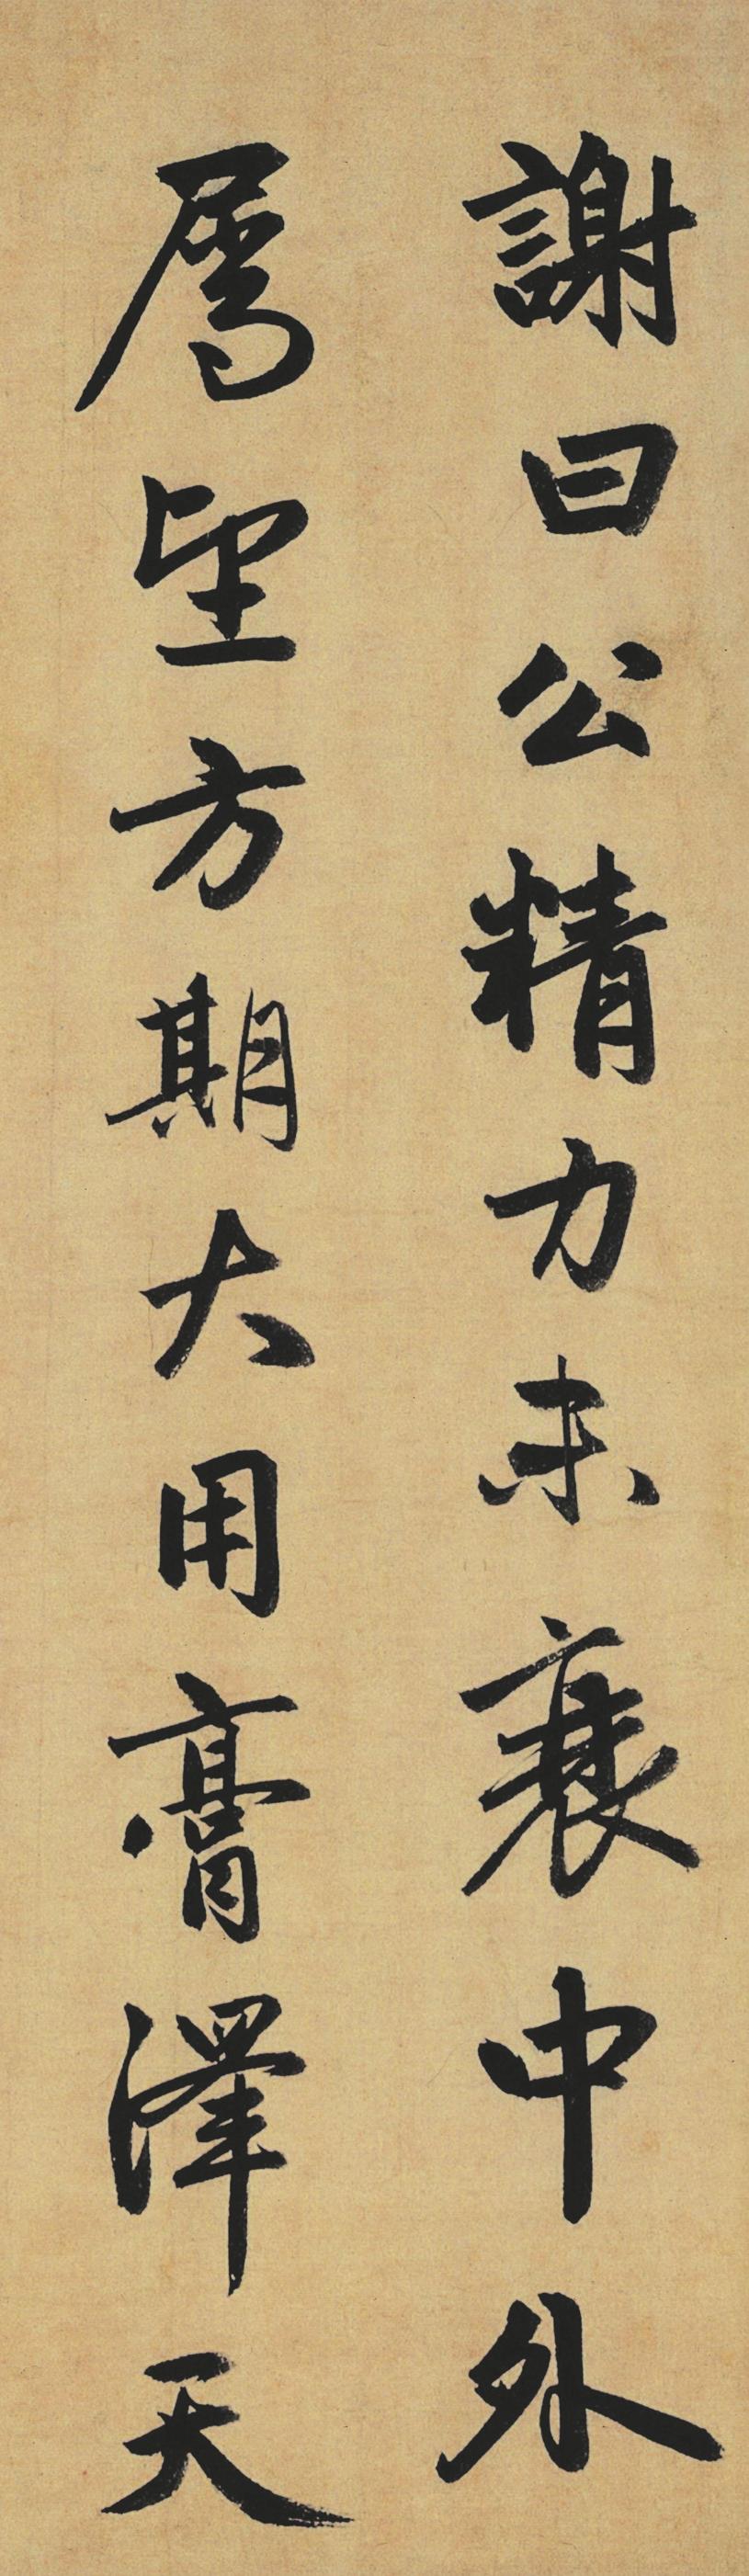 謝曰公精力未衰中外
属望方期大用膏澤天